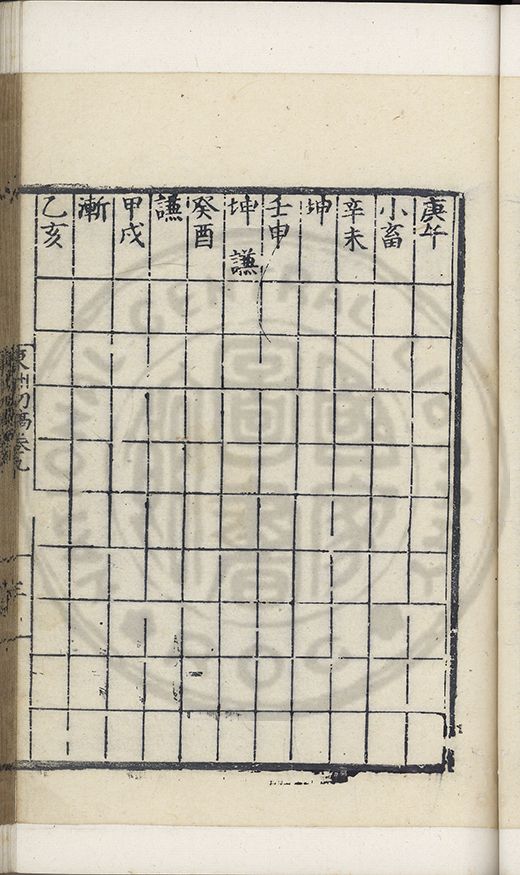 庚午
小畜
辛未
坤
壬申
坤 謙
癸酉
謙
甲戌
漸
乙亥
東洲初稿卷九